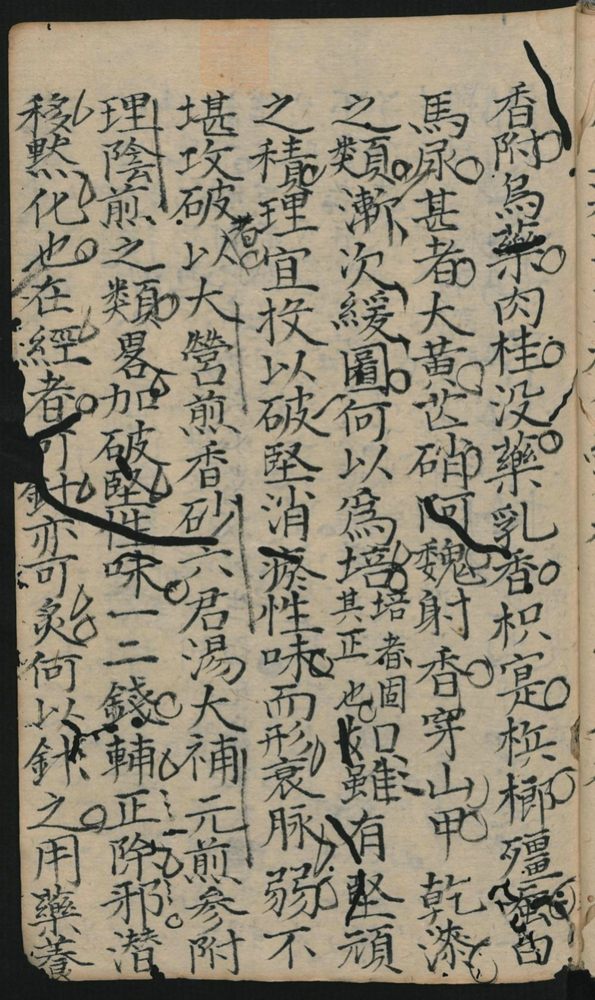 香附烏藥肉桂没藥乳香枳寔梹榔殭蚕白
馬尿甚者大黄芒硝阿魏射香穿山甲乾漆
之類漸次緩圖何以為培培者固其正也只雖有堅頑
之積理宜投以破堅消瘀性味而形衰脉弱不
堪攻破者以大營煎香砂六君湯大補元煎參附
理陰煎之類畧加破堅性味一二錢輔正除邪潜
移黙化也在經者可針亦可灸何以針之用藥養